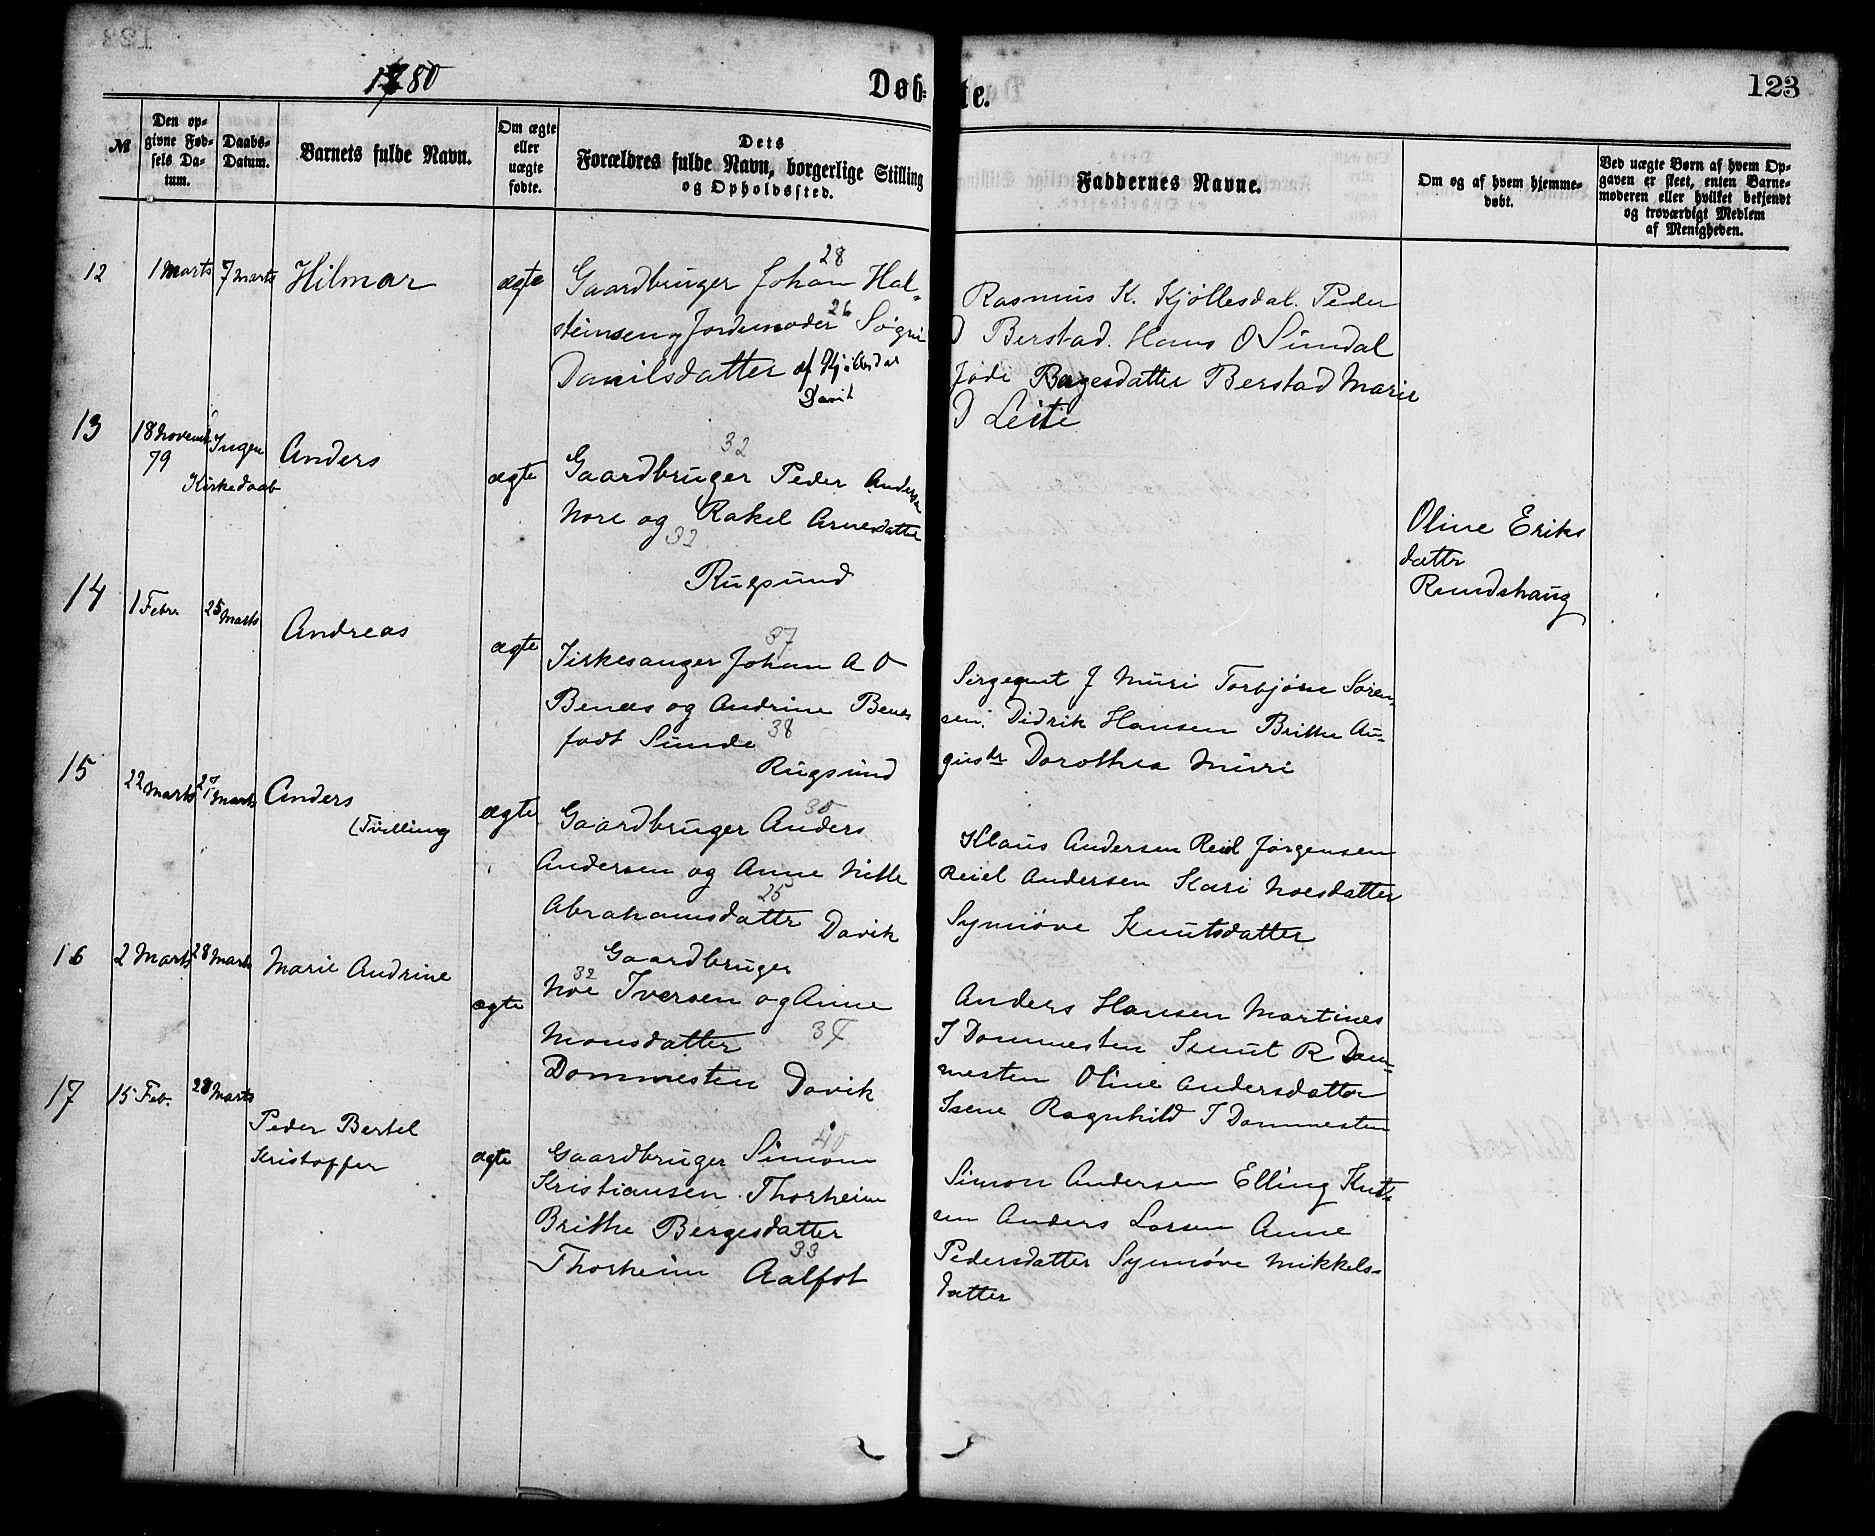 1880
Døbte.
123
№
Den opgivne Fødsels Datum.
Daabs-Datum.
Barnets fulde Navn.
Om ægte eller uægte fødte.
Dets Forældres fulde Navn, borgerlige Stilling og Opholdssted.
Faddernes Navne.
Om og af hvem hjemmedøbt.
Ved uægte Børn af hvem Opgaven er skeet, enten Barnemoderen eller hvilket bekjendt og troværdigt Medlem af Menigheden.
12
1 Marts
7 Marts
Hilmar
ægte
28
Gaardbruger Johan Hal-
26
steinsen og Jordemoder Signe
Danilsdatter af
Davik
Rasmus K. Kjøllesdal. Peder
D Berstad. Hans O Sundal
Børgesdatter Berstad Marie
D Leite
13
18 Novemb
79
Ingen
Kirkedaab
Anders
ægte
32
Gaardbruger Peder Andersen
Nore og Rakel Arnesdatter
32
Rugsund
Oline Eriks
datter
Rundehaug
14
1 Febr.
25 Marts
Andreas
ægte
37
Kirkesanger Johan A O
Benæs og Andrine Benæs
født Sunde 38
Rugsund
Sergeant J Muri Torbjørn Søren-
sen. Didrik Hansen Brithe Au-
gustdr Dorothea Muri
15
22 Marts
27 Marts
Anders
(Tvilling
ægte
30
Gaardbruger Anders
Andersen og Anne Nille
25
Abrahamsdatter Davik
Klaus Andersen Reiel Jørgensen
Reiel Andersen Kari Noesdatter
Synnøve Knutsdatter
16
2 Marts
28 Marts
Marie Andrine
ægte
Gaardbruger
32
Noe Iversen og Anne
Monsdatter 37
Dommesten Davik
Anders Hansen Martines
J Dommesten Knut R Dom-
mesten Oline Andersdatter
Isene Ragnhild J Dommesten
17
15 Feb.
28 Marts
Peder Bertel
Kristoffer
ægte
40
Gaardbruger Simon
Kristiansen Thorheim
Brithe Børgesdatter
33
Thorheim Aalfot
Simon Andersen Elling Knut-
sen Anders Larsen Anne
Pedersdatter Synnøve Mikkels-
datter